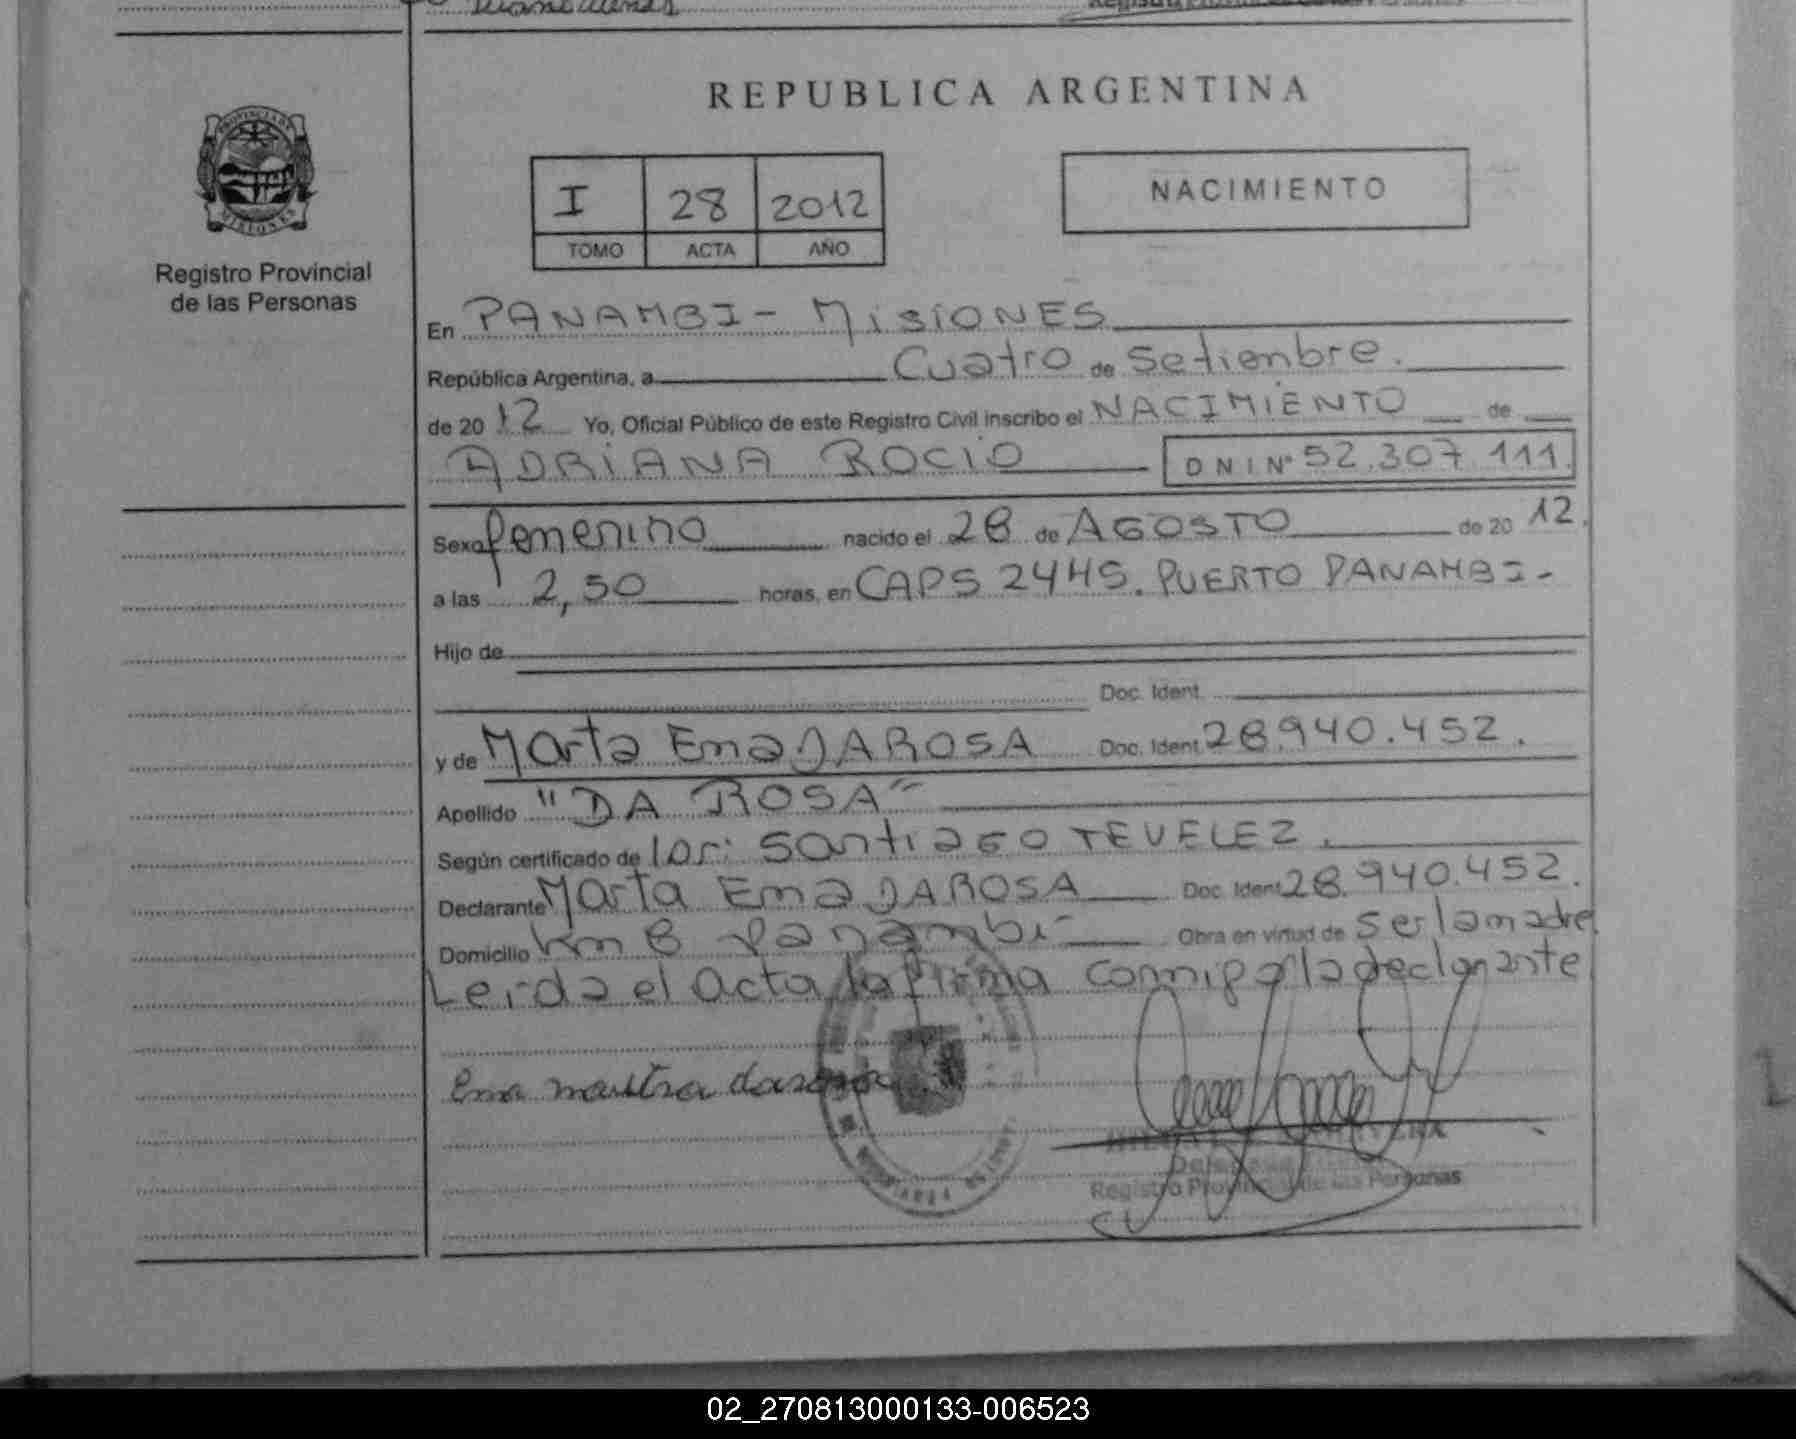 REPUBLICA ARGENTINA
PROVINCIA DE
MISIONES
Registro Provincial
de las Personas
I 28 2012
TOMO ACTA AÑO
NACIMIENTO
En PANAMBI - MISIONES
República Argentina, a Cuatro de Setiembre.
de 20 12 Yo, Oficial Público de este Registro Civil inscribo el NACIMIENTO de
ADRIANA ROCIO DNI Nº 52.307.111.
Sexo femenino nacido el 28 de AGOSTO de 20 12.
a las 2,50 horas, en CAPS 24HS. PUERTO PANAMBI-
Hijo de
Doc. Ident.
y de Marta Ema DAROSA Doc. Ident. 28.940.452.
Apellido "DA ROSA"
Según certificado de SANTIAGO TEVELEZ.
Declarante Marta Ema DAROSA Doc. Ident. 28.940.452.
Domicilio Km 8 Panambi Obra en virtud de ser la madre
Leida el Acta, la firma conmigo la declarante
Ema
Registro Provincial de las Personas
02_270813000133-006523